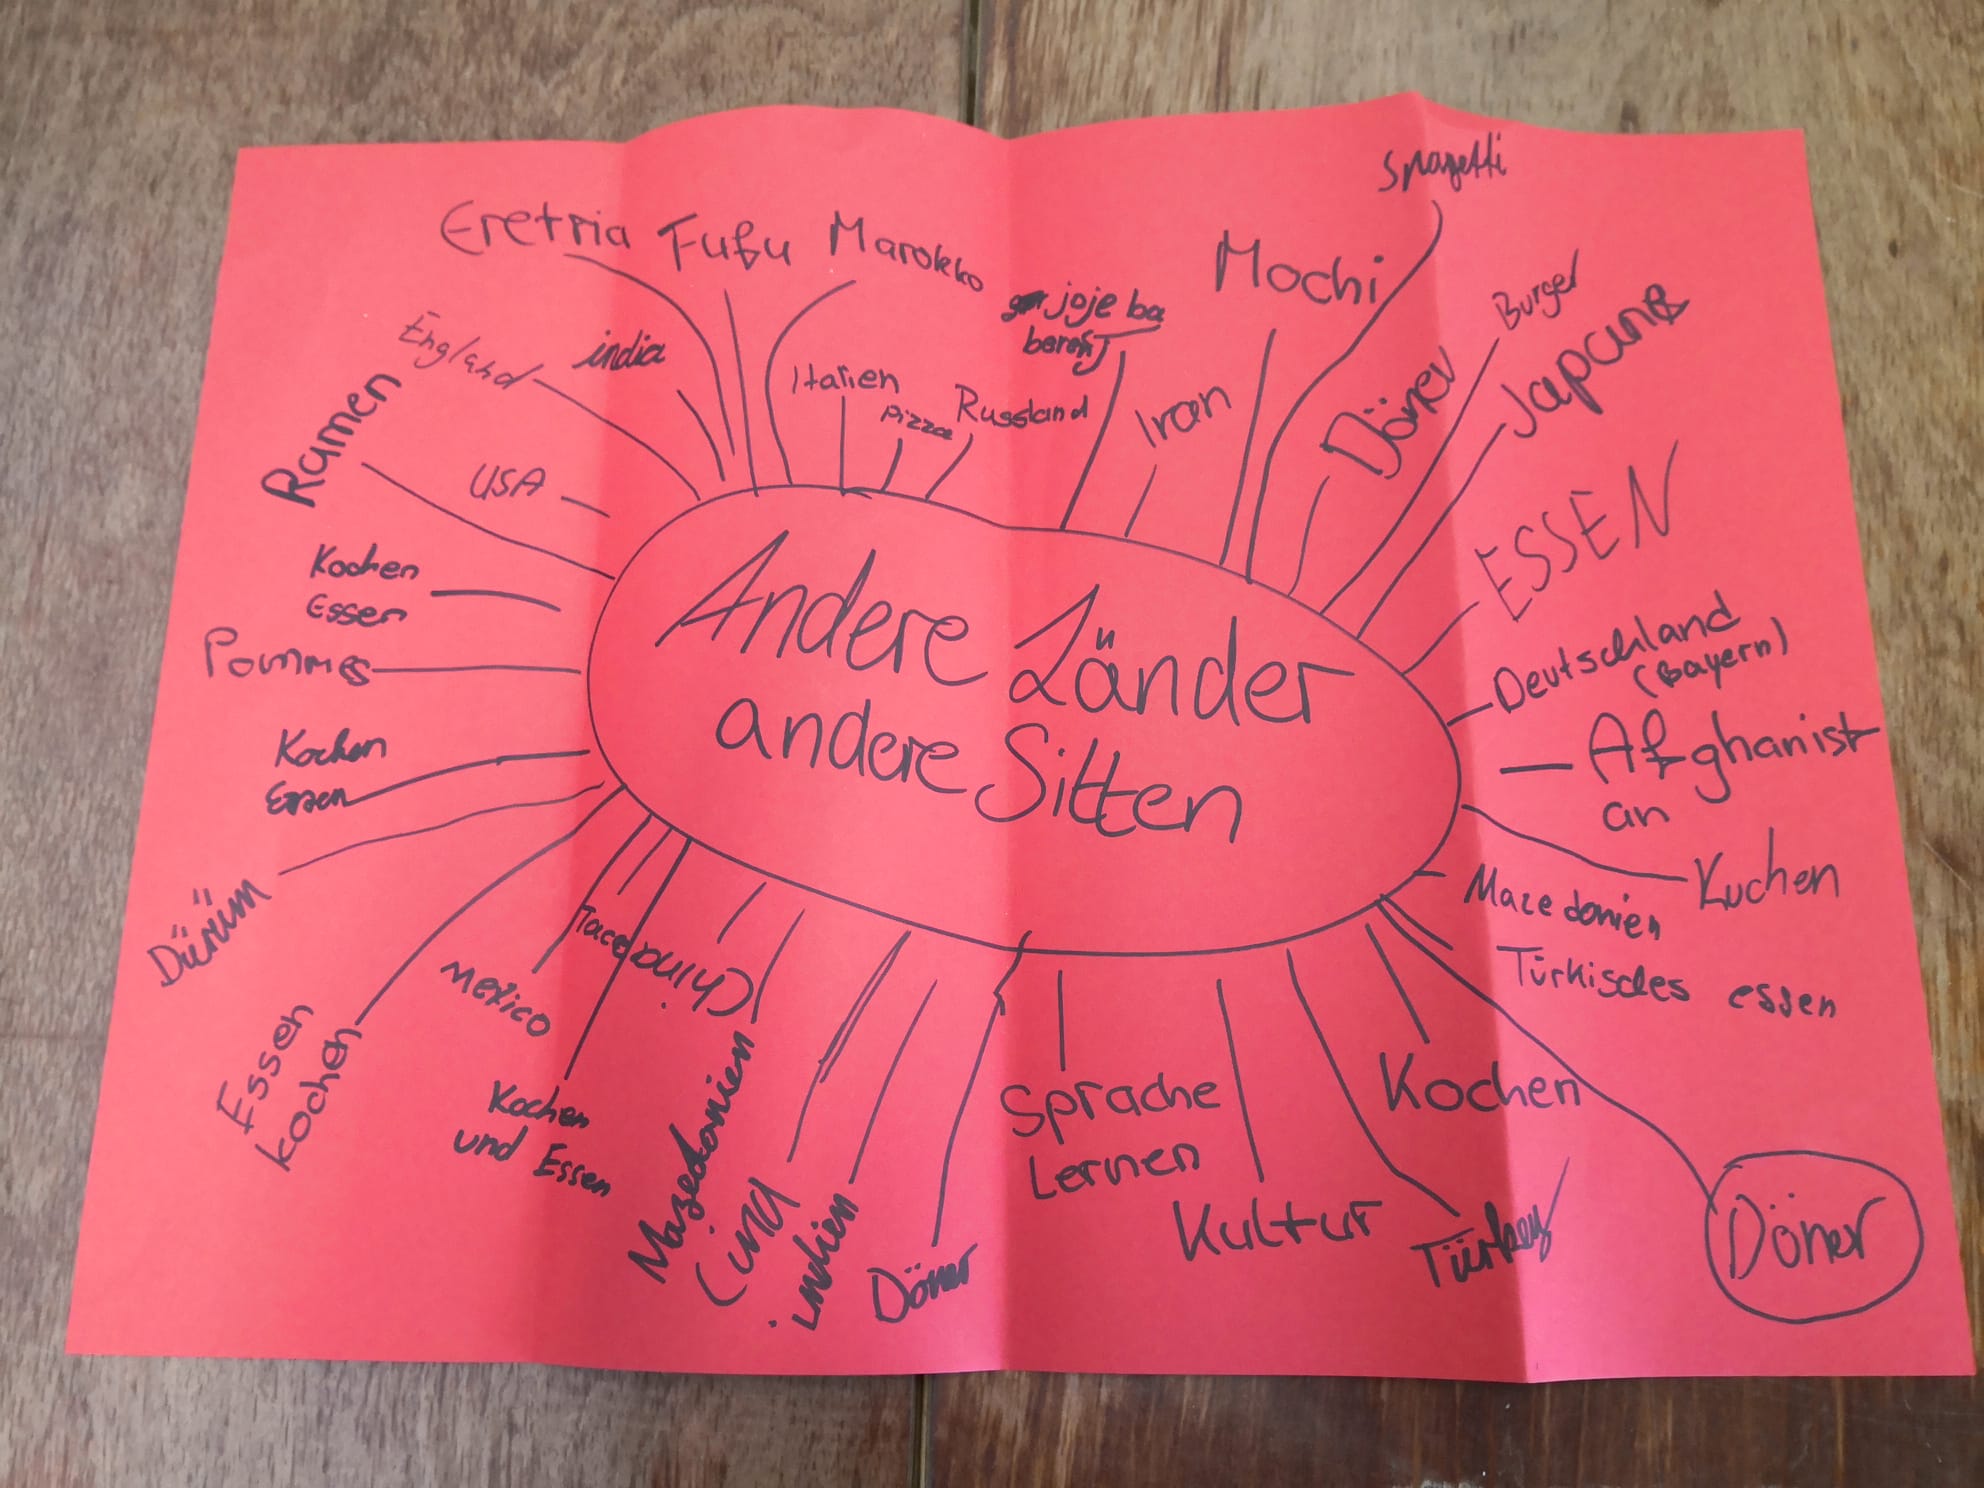 Spagetti
Eretria
Fufu
Marokko
Mochi
joje ba
Burger
Japan
England
india
Italien
Pizza
Russland
Iran
Döner
Ramen
USA
ESSEN
Kochen
Essen
Pommes
Andere Länder
andere Sitten
Deutschland
(Bayern)
Afghanist
an
Kochen
Essen
Kuchen
Mazedonien
Türkisches essen
Dürüm
Mexico
China
Essen
kochen
Kochen
und Essen
Mazedonien
indien
Döner
Sprache
Lernen
Kultur
Kochen
Türkey
Döner